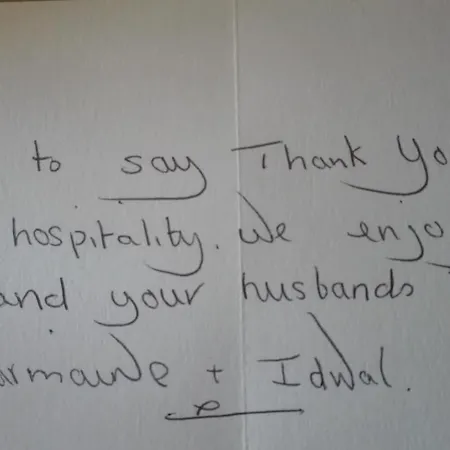 to say Thank Yo
hospitality. We enjo
and your husbands
+ Idwal.